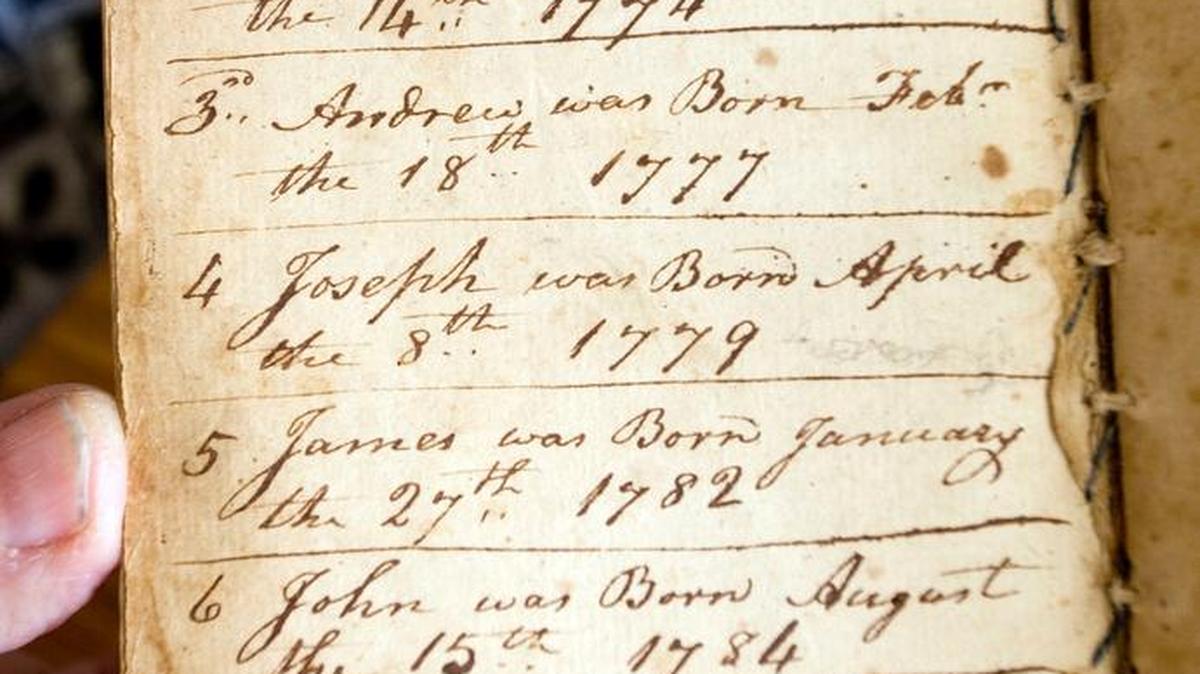 the 14th 1774
3rd Andrew was Born Febr
the 18th 1777
4 Joseph was Born April
the 8th 1779
5 James was Born January
the 27th 1782
6 John was Born August
the 15th 1784